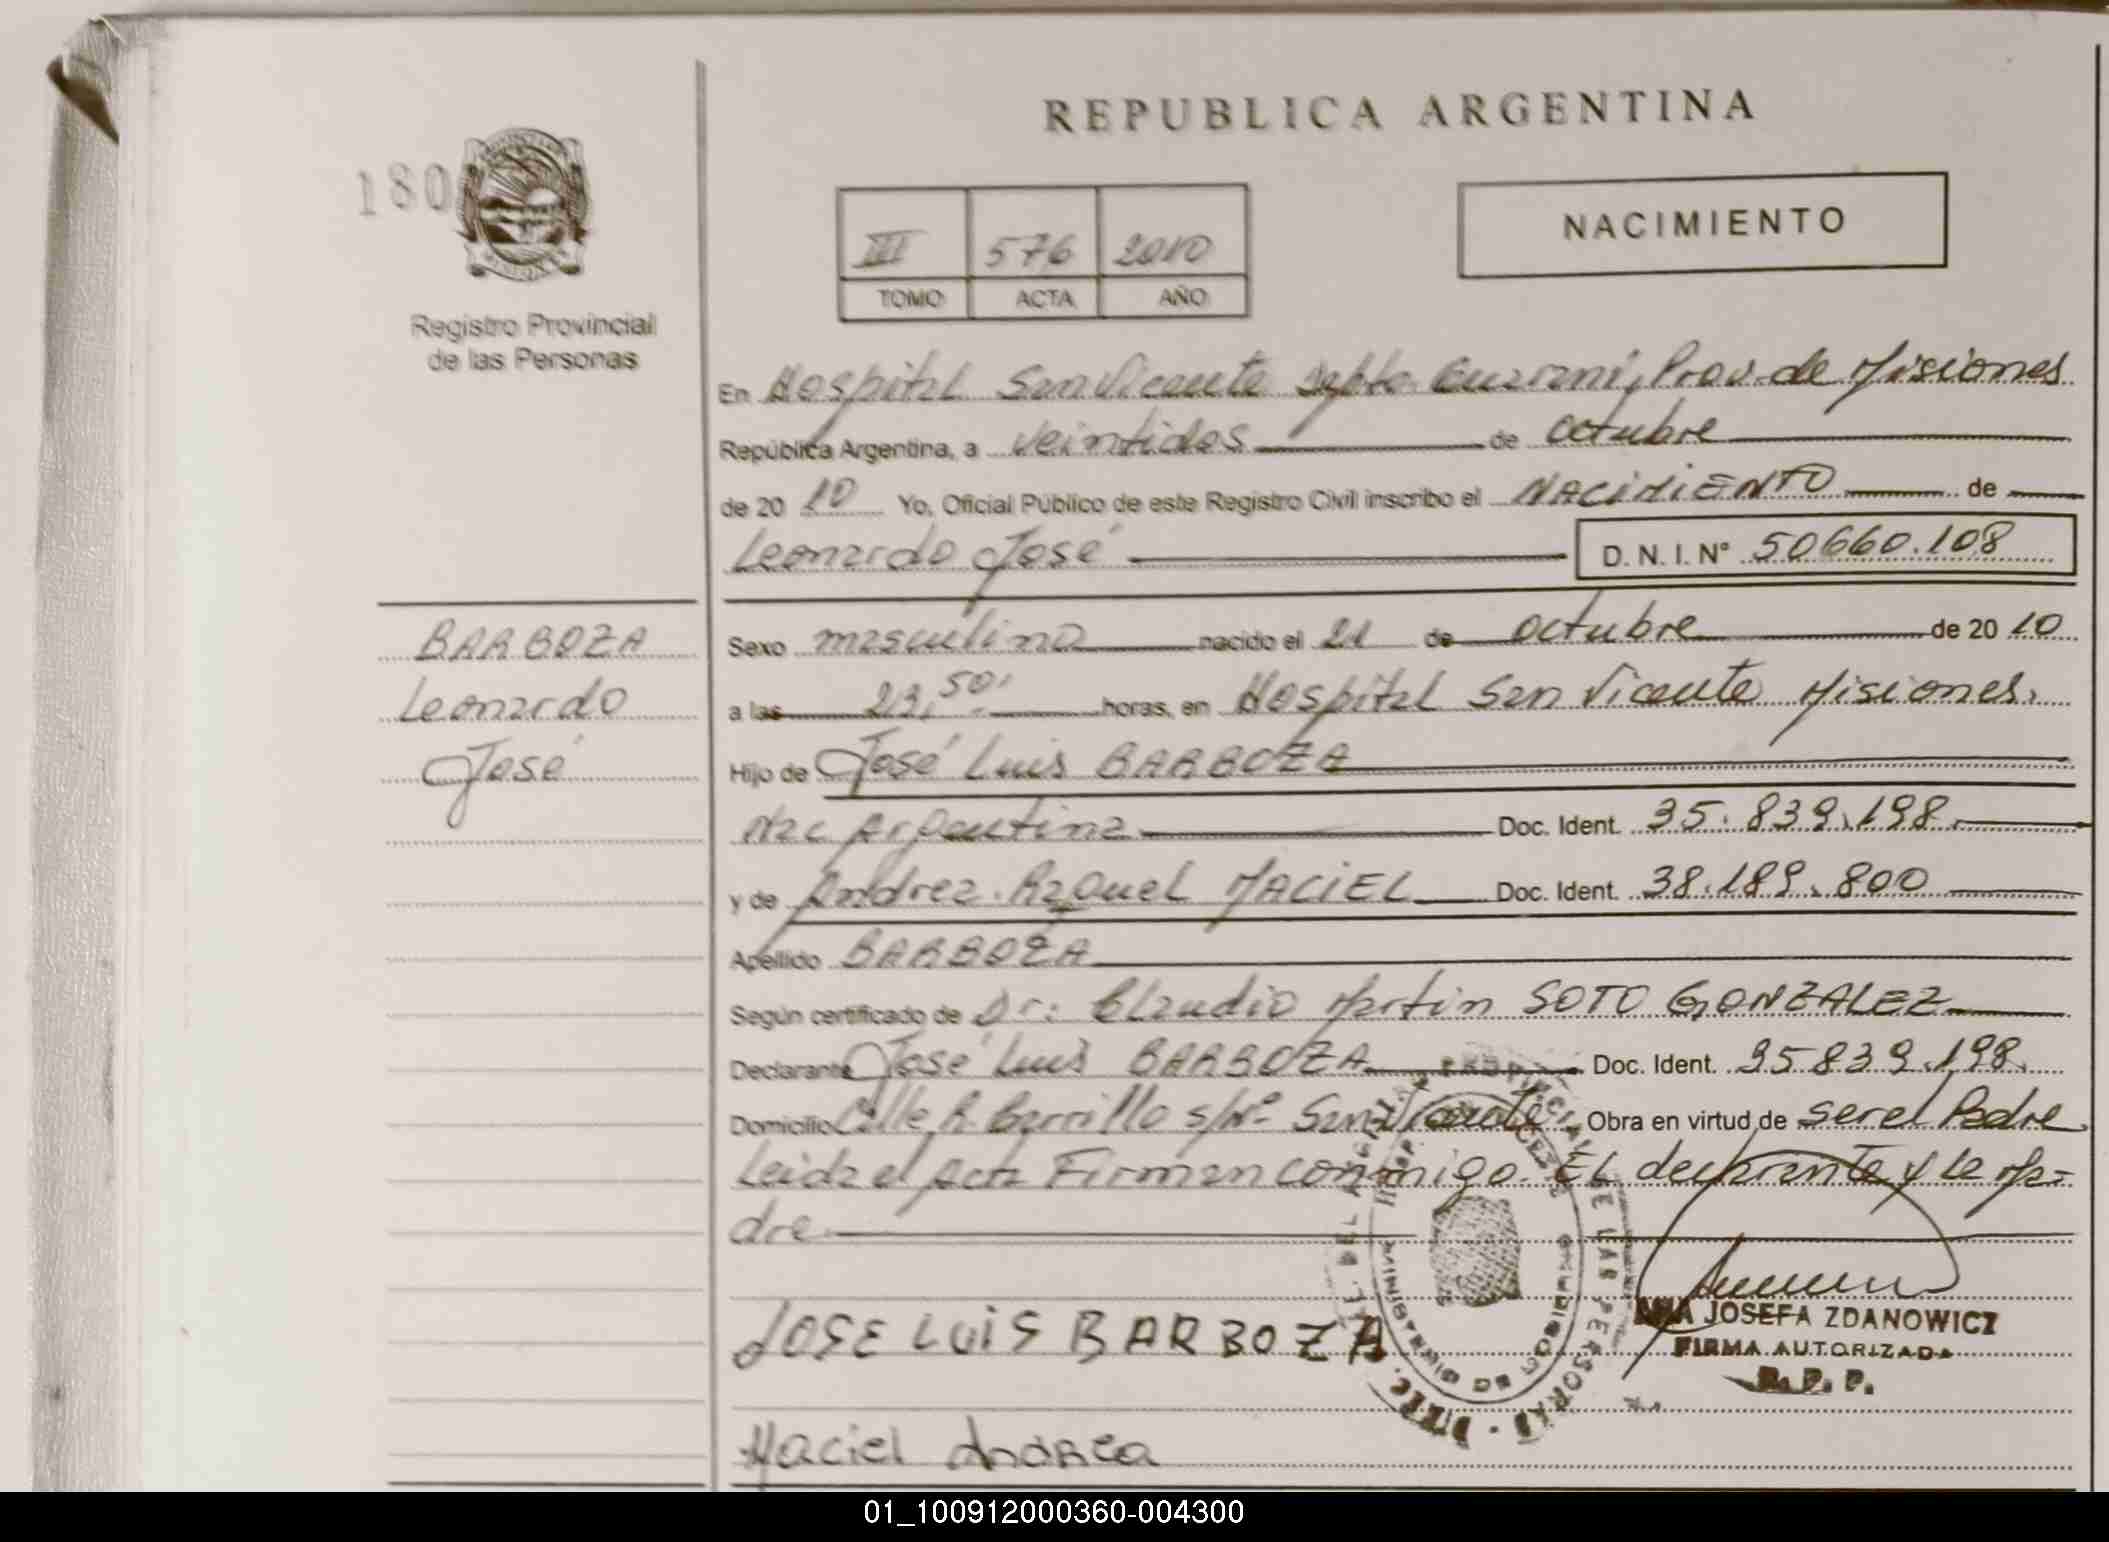 REPUBLICA ARGENTINA
180
III 576 2010
TOMO ACTA AÑO
NACIMIENTO
Registro Provincial
de las Personas
En Hospital San Vicente Dpto. Guaraní, Prov. de Misiones
República Argentina, a veintidos de octubre
de 20 10 Yo, Oficial Público de este Registro Civil inscribo el NACIMIENTO de
Leonardo José D. N. I. N° 50660.108
BARBOZA
Leonardo
José
Sexo masculino nacido el 21 de octubre de 20 10
a las 23,50' horas, en Hospital San Vicente Misiones.
Hijo de José Luis BARBOZA
Nac Argentina Doc. Ident. 35.839.198.
y de Andrea Raquel MACIEL Doc. Ident. 38.189.800
Apellido BARBOZA
Según certificado de Dr: Claudio Martin SOTO GONZALEZ
Declarante José Luis BARBOZA Doc. Ident. 35839.198.
Domicilio Calle R. Barrillo s/Nº San Vicente Obra en virtud de ser el Padre
Leida el Acta Firman conmigo. El declarante y la Ma-
dre
JOSE LUIS BARBOZA
ANA JOSEFA ZDANOWICZ
FIRMA AUTORIZADA
R. P. P.
Maciel Andrea
01_100912000360-004300